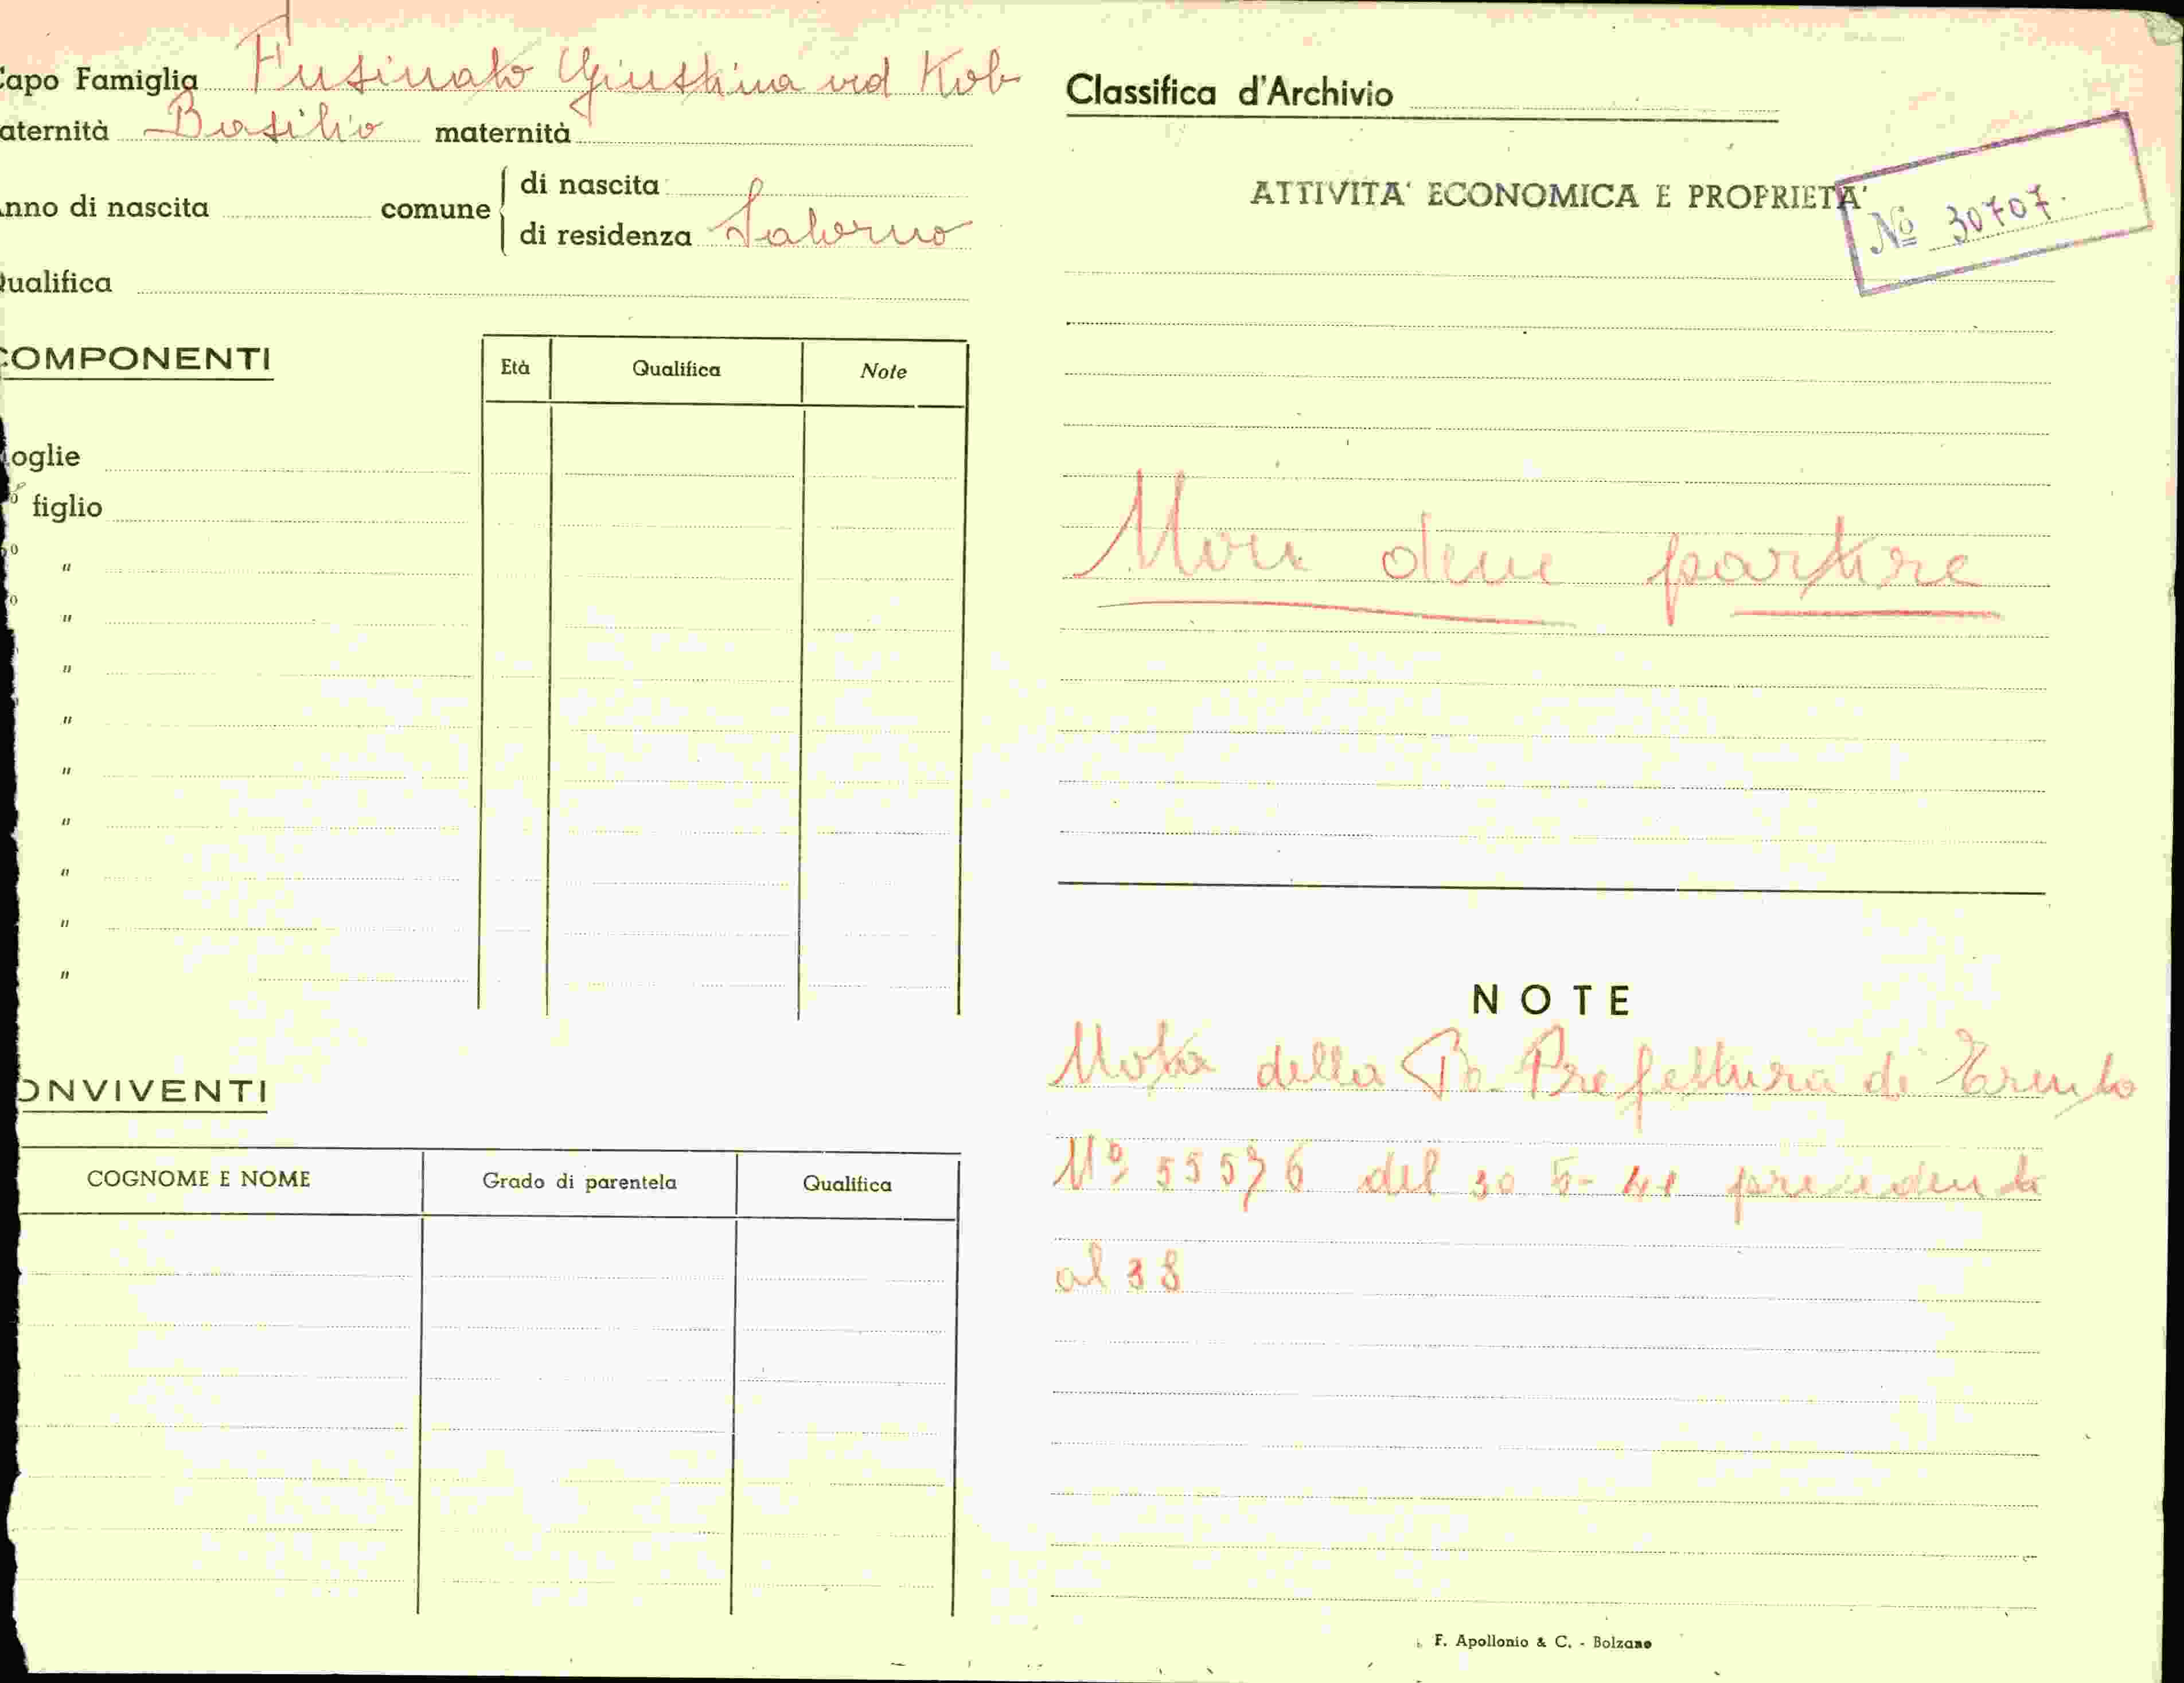 Capo Famiglia Fusinato Giustina ved Kob
aternità Basilio maternità
nno di nascita comune di nascita
di residenza Salorno
Qualifica
COMPONENTI
Età Qualifica Note
oglie
figlio
"
"
"
"
"
"
"
"
"
ONVIVENTI
COGNOME E NOME Grado di parentela Qualifica
Classifica d'Archivio
ATTIVITA' ECONOMICA E PROPRIETA'
Nº 30707.
Non deve partire
NOTE
Nota della R. Prefettura di Trento
Nº 55576 del 30 5-41 precedente
al 38
F. Apollonio & C. - Bolzano